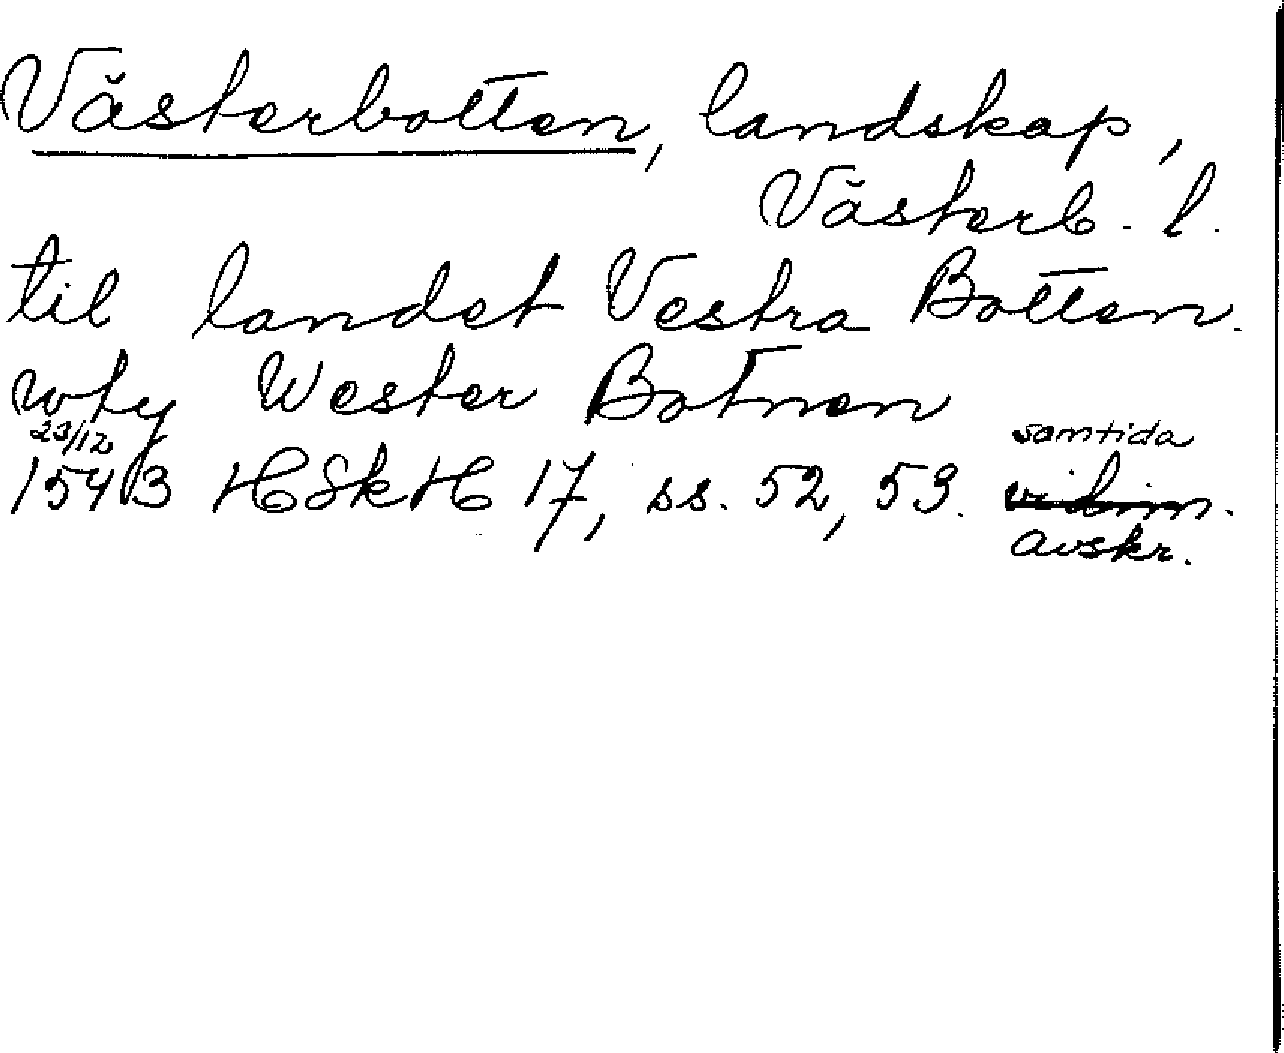 Västerbotten, landskap,
Västerb. l.
til landet Vestra Botten.
wty Wester Botnen
23/12
1543 HSkH 17, ss. 52, 53. samtida
vidim.
avskr.